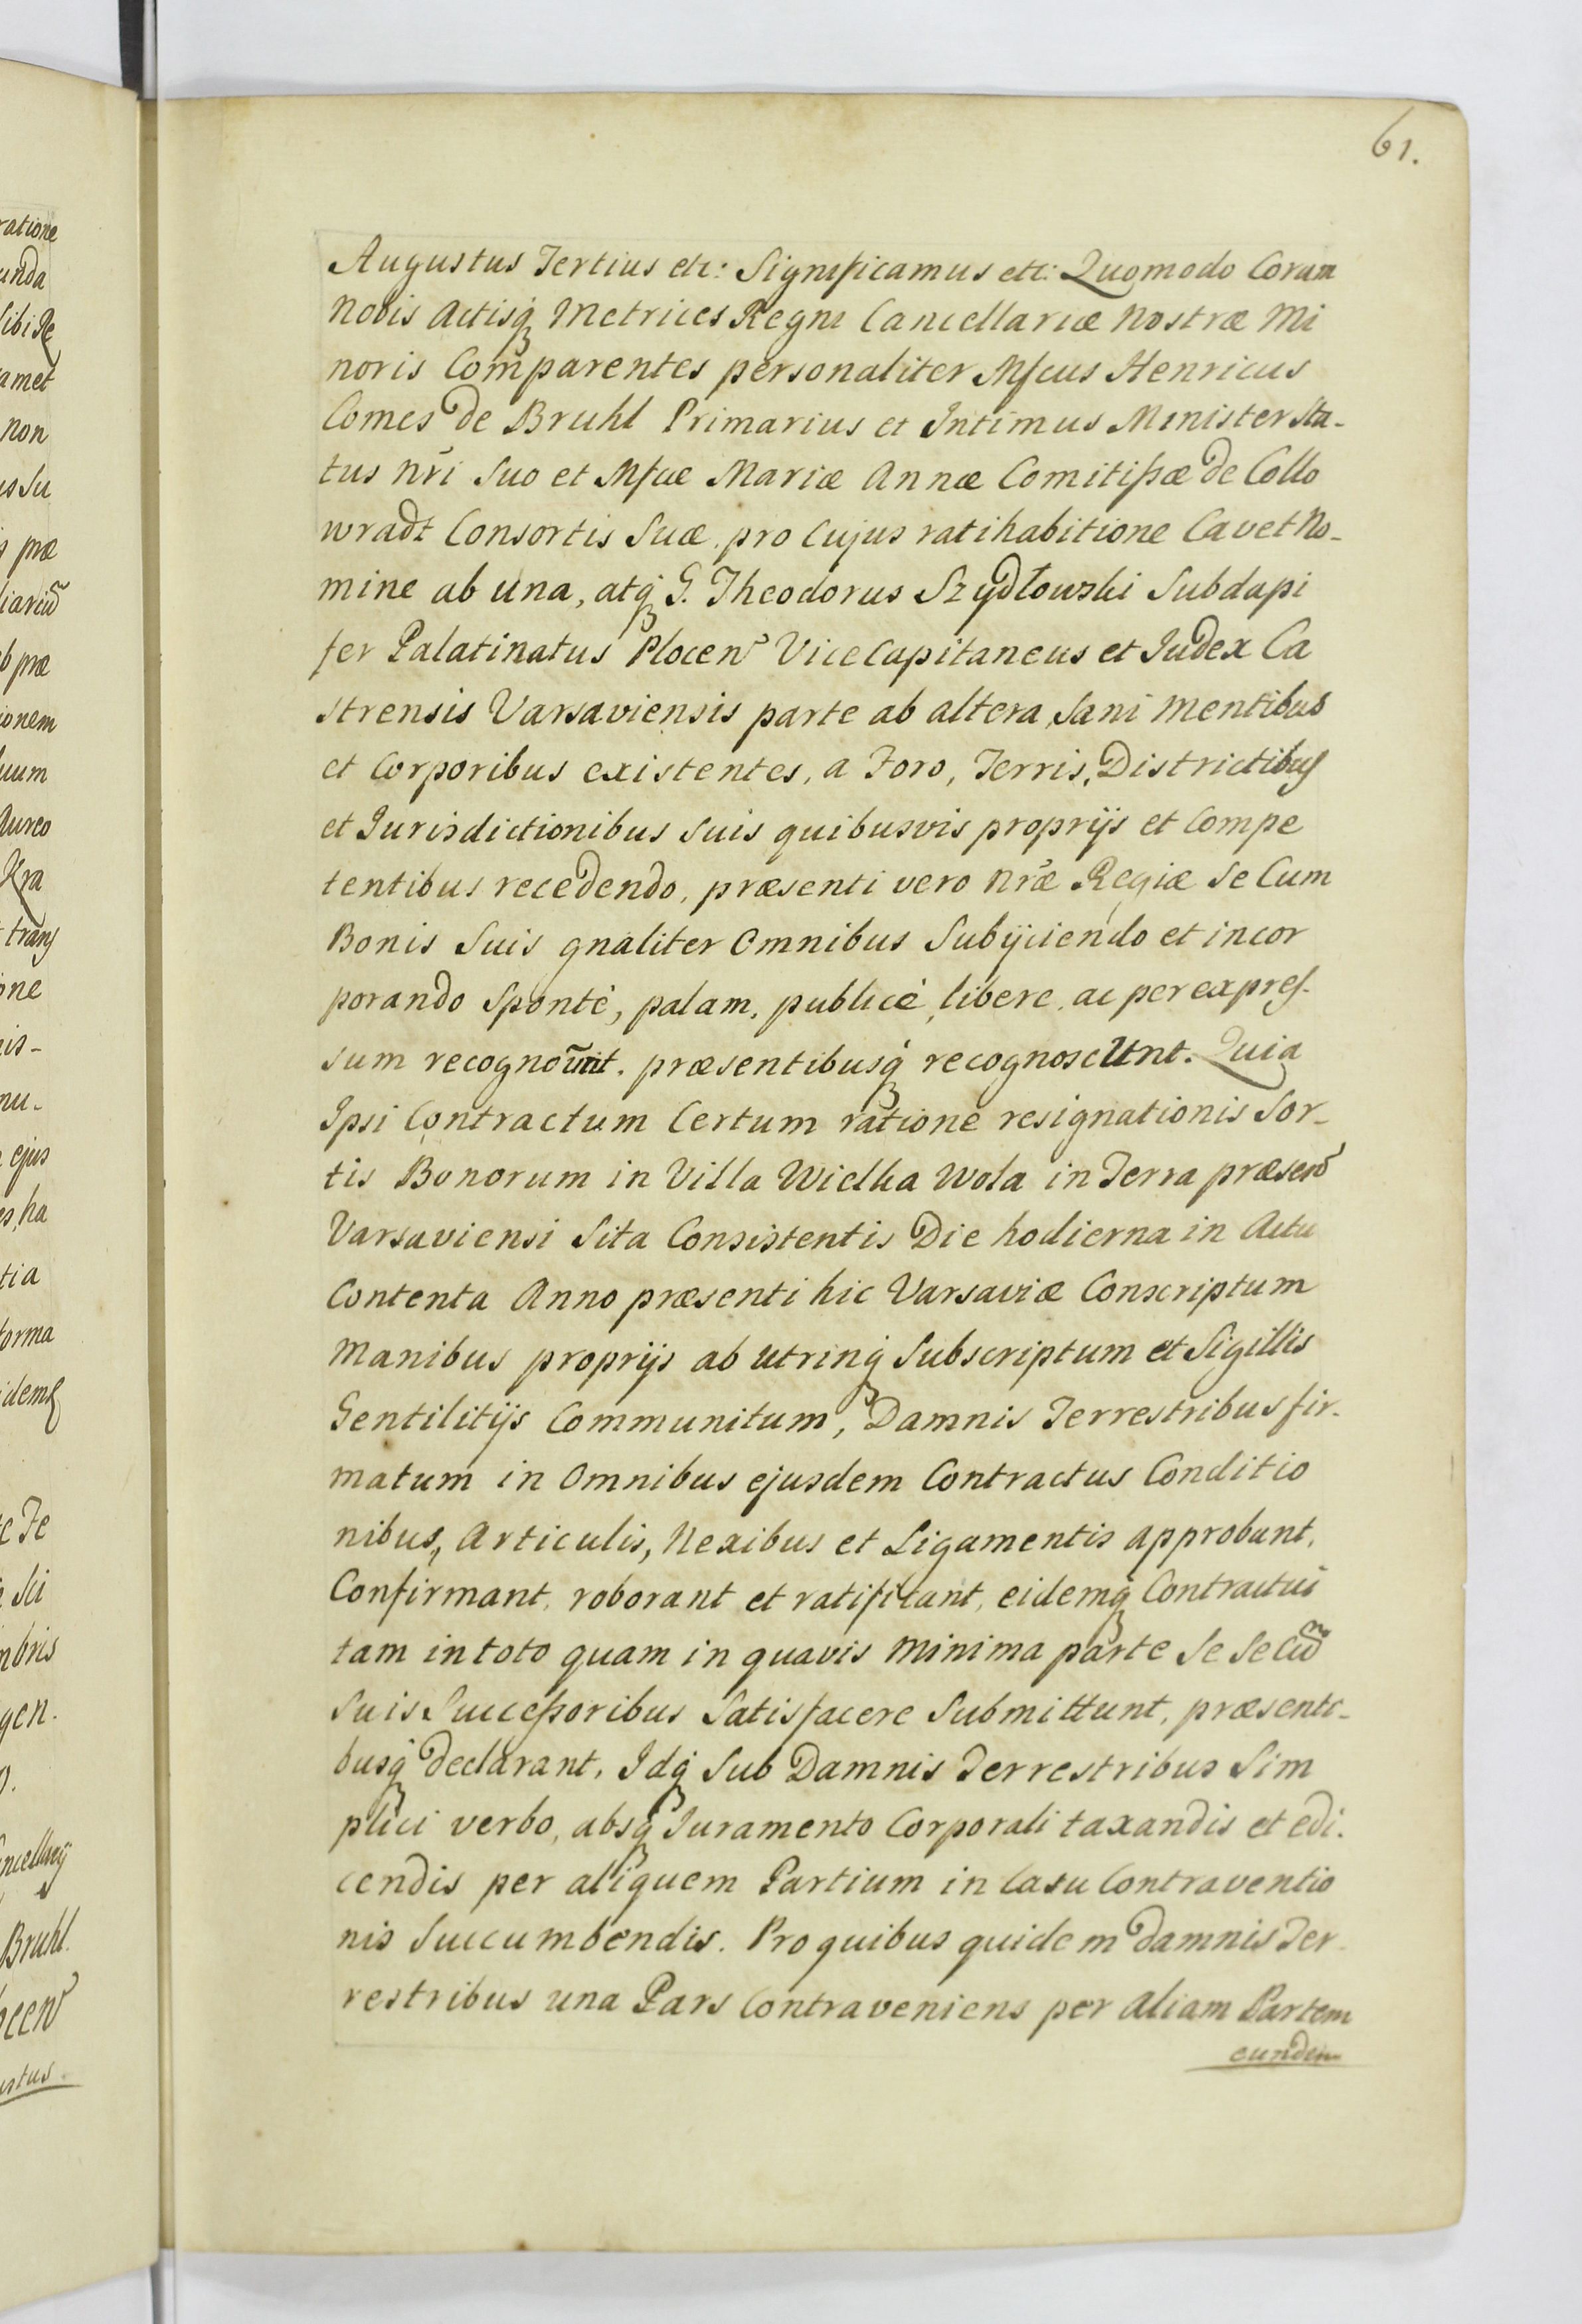 61.
Augustus Tertius etc: Significamus etc: Quomodo Coram
Nobis Actisq́ Metrices Regni Cancellariæ Nostræ Mi
noris Comparentes personaliter Mfcus Henricus
Comes de Bruhl Primarius et Intimus Minister Sta-
tus nr̃i Suo et Mfcæ Mariæ Annæ Comitißæ de Collo
wradt Consortis Suæ pro Cujus ratihabitione Cavet No-
mine ab una, atq́ G. Theodorus Szydłowski Subdapi
fer Palatinatus Plocen̄ Vice Capitaneus et Judex Ca
strensis Varsaviensis parte ab altera, Sani mentibus
et Corporibus existentes, a Foro, Terris, Districtibus
et Jurisdictionibus Suis quibusvis proprijs et Compe
tentibus recedendo, præsenti vero nr̃æ Regiæ Se Cum
Bonis Suis gnaliter Omnibus Subijciendo et incor
porando Sponté, palam, publicé, libere, ac per expres-
sum recognoṽnt. præsentibusq́ recognoscunt. Quia
Ipsi Contractum Certum ratione resignationis Sor-
tis Bonorum in Villa Wielka Wola in Terra præsen̄
Varsaviensi Sita Consistentis Die hodierna in Actu
Contenta Anno præsenti hic Varsaviæ Conscriptum
Manibus proprijs ab utrinq́ Subscriptum et Sigillis
Gentilitijs Communitum, Damnis Terrestribus fir-
matum in Omnibus ejusdem Contractus Conditio
nibus, Articulis, Nexibus et Ligamentis approbant,
Confirmant, roborant et ratificant, eidemq́ Contractui
tam in toto quam in quavis minima parte Se Se Cũ
Suis Succeßoribus Satisfacere Submittunt, præsenti-
busq́ declarant, Idq́ Sub Damnis Terrestribus Sim
plici verbo, absq́ Juramento Corporali taxandis et edi-
cendis per aliquem Partium in Casu Contraventio
nis Succumbendis. Pro quibus quidem damnis Ter-
restribus una Pars Contraveniens per aliam Partem
eundem
ratione
unda
Sibi Re
amet
non
præ
b præ
ionem
Aureo
Kra
ejus
tia
forma
Bruhl